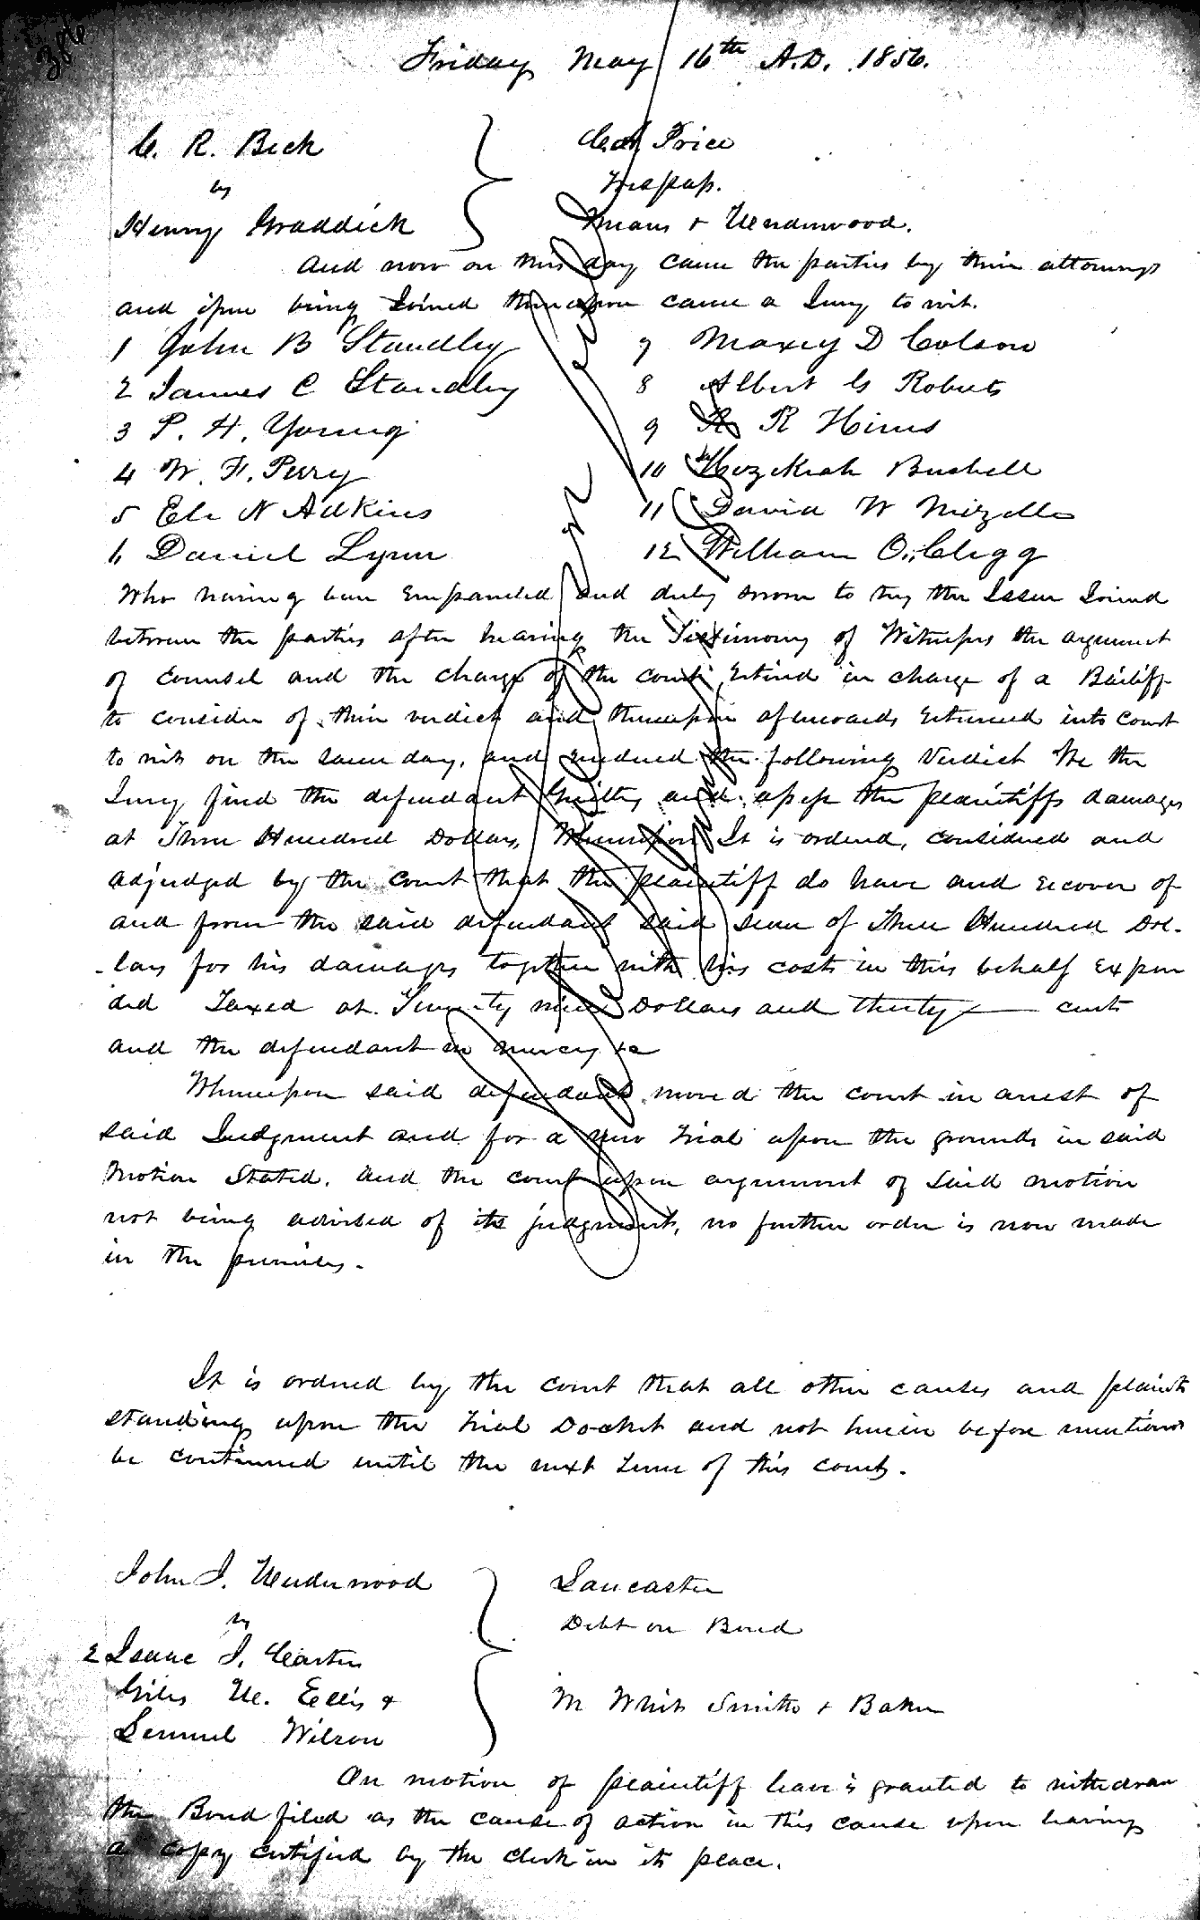 386
Friday May 16th A.D. 1856.
C. R. Beck
vs
Henry Graddick
Cal Price
Trespass.
Means & Underwood.
And now on this day came the parties by their attorneys
and issue being Joined thereupon came a Jury to wit.
1 John B Standley
2 James C Standley
3 P. H. Young
4 W. F. Perry
5 Eli N Adkins
6 Daniel Lynn
7 Maxey D Colson
8 Albert G Roberts
9 R Hines
10 Hezekiah Bushell
11 David W Mizelle
12 William O. Clegg
Who having been Empaneled and duly sworn to try the Issue Joined
between the parties after hearing the Testimony of Witnesses the argument
of Counsel and the charge of the court, retired in charge of a Bailiff
to consider of their verdict and thereupon afterwards returned into Court
to wit on the same day, and rendered the following Verdict We the
Jury find the defendant Guilty and assess the plaintiffs damages
at Three Hundred Dollars, Whereupon It is ordered, considered and
adjudged by the court that the plaintiff do have and recover of
and from the said defendant said sum of Three Hundred Dol-
-lars for his damages together with his costs in this behalf expen
ded Taxed at Twenty nine Dollars and thirty cents
and the defendant in mercy &c
Whereupon said defendant moved the court in arrest of
said Judgment and for a new trial upon the grounds in said
Motion Stated. and the court upon argument of said motion
not being advised of its judgment, no further order is now made
in the premises.
It is ordered by the court that all other causes and plaints
standing upon the trial Docket and not herein before mentioned
be continued until the next term of this court.
John J. Underwood
vs
2 Isaac J. Carter
Giles U. Ellis &
Lemuel Wilson
Lancaster
Debt on Bond
M Whit Smith & Baker
On motion of plaintiff leave is granted to withdraw
the Bond filed as the cause of action in this cause upon leaving
a copy certified by the clerk in its place.